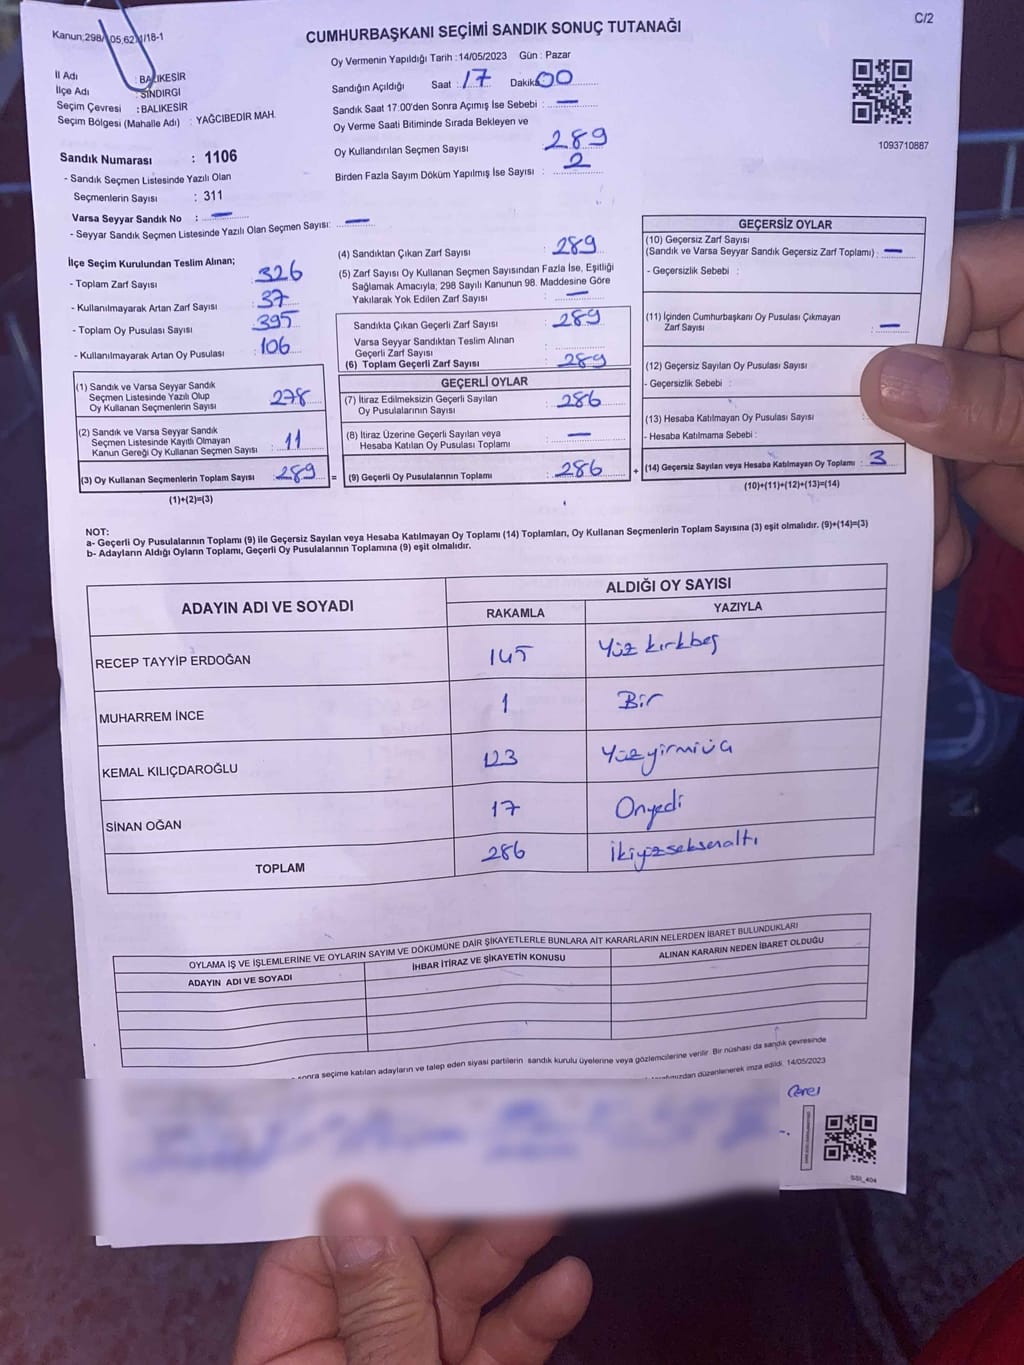 Kanun;298/105,62/1/18-1
C/2
CUMHURBAŞKANI SEÇİMİ SANDIK SONUÇ TUTANAĞI
İl Adı : BALIKESİR
İlçe Adı : SINDIRGI
Seçim Çevresi : BALIKESİR
Seçim Bölgesi (Mahalle Adı) : YAĞCIBEDİR MAH.
Sandık Numarası : 1106
- Sandık Seçmen Listesinde Yazılı Olan
Seçmenlerin Sayısı : 311
Varsa Seyyar Sandık No : —
- Seyyar Sandık Seçmen Listesinde Yazılı Olan Seçmen Sayısı: —
Oy Vermenin Yapıldığı Tarih : 14/05/2023 Gün : Pazar
Sandığın Açıldığı Saat : 17 Dakika 00
Sandık Saat 17:00'den Sonra Açımış İse Sebebi : —
Oy Verme Saati Bitiminde Sırada Bekleyen ve
Oy Kullandırılan Seçmen Sayısı 289
Birden Fazla Sayım Döküm Yapılmış İse Sayısı : 2
1093710887
İlçe Seçim Kurulundan Teslim Alınan;
- Toplam Zarf Sayısı : 326
- Kullanılmayarak Artan Zarf Sayısı : 37
- Toplam Oy Pusulası Sayısı : 395
- Kullanılmayarak Artan Oy Pusulası : 106
(1) Sandık ve Varsa Seyyar Sandık
Seçmen Listesinde Yazılı Olup
Oy Kullanan Seçmenlerin Sayısı : 278
(2) Sandık ve Varsa Seyyar Sandık
Seçmen Listesinde Kayıtlı Olmayan
Kanun Gereği Oy Kullanan Seçmen Sayısı : 11
(3) Oy Kullanan Seçmenlerin Toplam Sayısı : 289 =
(1)+(2)=(3)
(4) Sandıktan Çıkan Zarf Sayısı : 289
(5) Zarf Sayısı Oy Kullanan Seçmen Sayısından Fazla İse, Eşitliği
Sağlamak Amacıyla; 298 Sayılı Kanunun 98. Maddesine Göre
Yakılarak Yok Edilen Zarf Sayısı : —
Sandıkta Çıkan Geçerli Zarf Sayısı : 289
Varsa Seyyar Sandıktan Teslim Alınan
Geçerli Zarf Sayısı :
(6) Toplam Geçerli Zarf Sayısı : 289
GEÇERLİ OYLAR
(7) İtiraz Edilmeksizin Geçerli Sayılan
Oy Pusulalarının Sayısı : 286
(8) İtiraz Üzerine Geçerli Sayılan veya
Hesaba Katılan Oy Pusulası Toplamı : —
(9) Geçerli Oy Pusulalarının Toplamı : 286 +
GEÇERSİZ OYLAR
(10) Geçersiz Zarf Sayısı
(Sandık ve Varsa Seyyar Sandık Geçersiz Zarf Toplamı) : —
- Geçersizlik Sebebi :
(11) İçinden Cumhurbaşkanı Oy Pusulası Çıkmayan
Zarf Sayısı : —
(12) Geçersiz Sayılan Oy Pusulası Sayısı
- Geçersizlik Sebebi :
(13) Hesaba Katılmayan Oy Pusulası Sayısı
- Hesaba Katılmama Sebebi :
(14) Geçersiz Sayılan veya Hesaba Katılmayan Oy Toplamı : 3
(10)+(11)+(12)+(13)=(14)
NOT:
a- Geçerli Oy Pusulalarının Toplamı (9) ile Geçersiz Sayılan veya Hesaba Katılmayan Oy Toplamı (14) Toplamları, Oy Kullanan Seçmenlerin Toplam Sayısına (3) eşit olmalıdır. (9)+(14)=(3)
b- Adayların Aldığı Oyların Toplamı, Geçerli Oy Pusulalarının Toplamına (9) eşit olmalıdır.
ADAYIN ADI VE SOYADI ALDIĞI OY SAYISI
RAKAMLA YAZIYLA
RECEP TAYYİP ERDOĞAN 145 Yüz kırkbeş
MUHARREM İNCE 1 Bir
KEMAL KILIÇDAROĞLU 123 Yüzyirmiüç
SİNAN OĞAN 17 Onyedi
TOPLAM 286 İkiyüzseksenaltı
OYLAMA İŞ VE İŞLEMLERİNE VE OYLARIN SAYIM VE DÖKÜMÜNE DAİR ŞİKAYETLERLE BUNLARA AİT KARARLARIN NELERDEN İBARET BULUNDUKLARI
ADAYIN ADI VE SOYADI İHBAR İTİRAZ VE ŞİKAYETİN KONUSU ALINAN KARARIN NEDEN İBARET OLDUĞU
sonra seçime katılan adayların ve talep eden siyasi partilerin sandık kurulu üyelerine veya gözlemcilerine verilir. Bir nüshası da sandık çevresinde
tarafımızdan düzenlenerek imza edildi. 14/05/2023
SSI_404